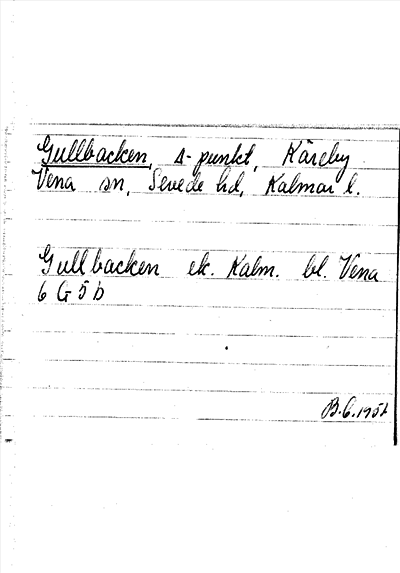 Gullbacken, s-punkt, Käreby
Vena sn, Sevede hd, Kalmar l.
Gullbacken ek. Kalm. bl. Vena
6 G 5 b
B.G. 1951